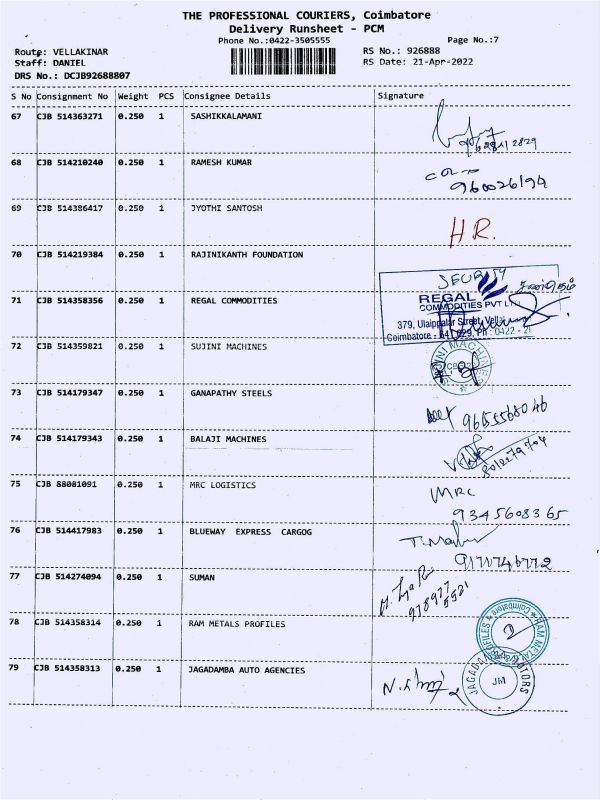 THE PROFESSIONAL COURIERS, Coimbatore
Delivery Runsheet - PCM
Phone No.:0422-3505555
Page No.:7
Route: VELLAKINAR
RS No.: 926888
Staff: DANIEL
RS Date: 21-Apr-2022
DRS No.: DCJB92688807
S No Consignment No Weight PCS Consignee Details Signature
67 CJB 514363271 0.250 1 SASHIKKALAMANI
68 CJB 514210240 0.250 1 RAMESH KUMAR
69 CJB 514386417 0.250 1 JYOTHI SANTOSH
H.R.
70 CJB 514219384 0.250 1 RAJINIKANTH FOUNDATION
SECURITY
71 CJB 514358356 0.250 1 REGAL COMMODITIES
REGAL
COMMODITIES PVT LTD
379, Ulaippalar Street, Vella
Coimbatore - 641 029, PH : 0422 - 21
72 CJB 514359821 0.250 1 SUJINI MACHINES
73 CJB 514179347 0.250 1 GANAPATHY STEELS
9655568046
74 CJB 514179343 0.250 1 BALAJI MACHINES
75 CJB 88081091 0.250 1 MRC LOGISTICS
MRC
9345608365
76 CJB 514417983 0.250 1 BLUEWAY EXPRESS CARGOG
77 CJB 514274094 0.250 1 SUMAN
78 CJB 514358314 0.250 1 RAM METALS PROFILES
79 CJB 514358313 0.250 1 JAGADAMBA AUTO AGENCIES
JM